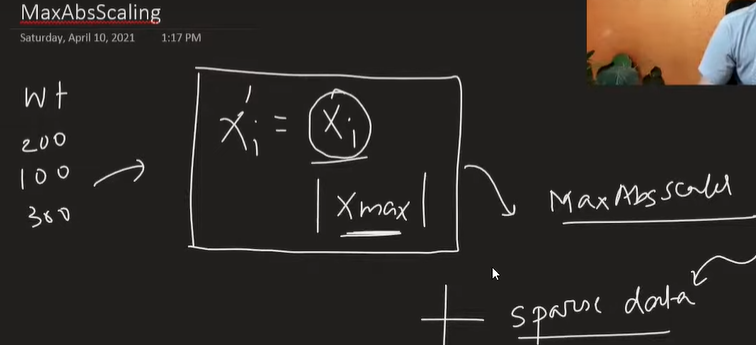 MaxAbsScaling
Saturday, April 10, 2021 1:17 PM
Wt
200
100
300
x'i = xi
|xmax|
MaxAbsScaler
sparse data